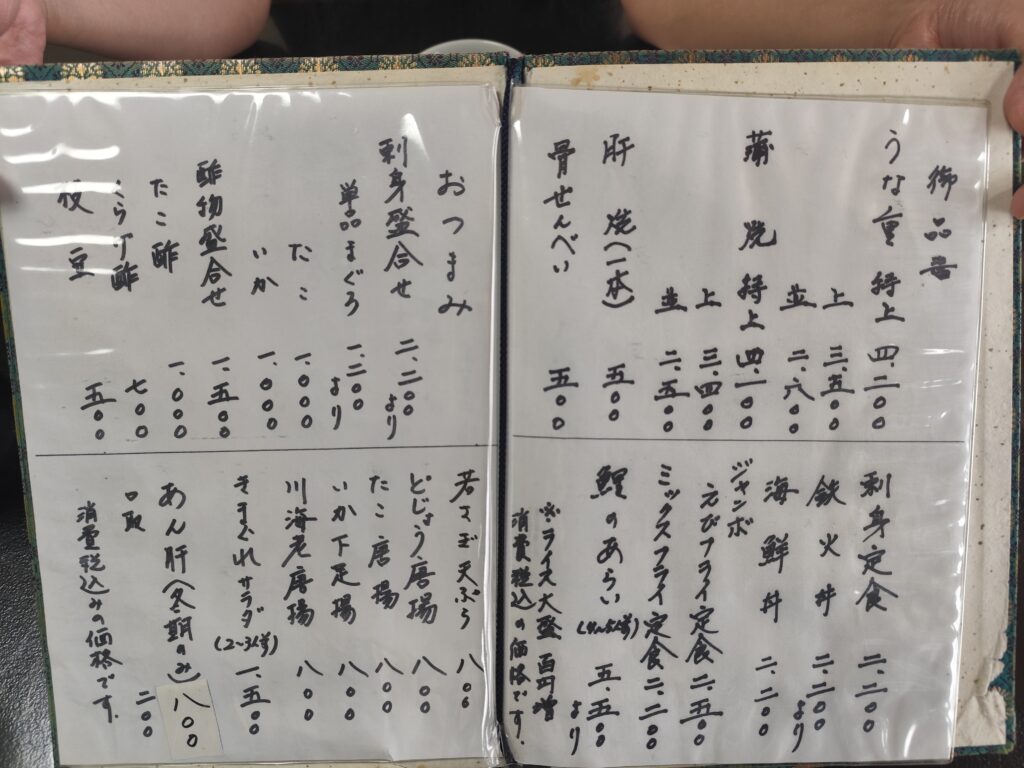 御品書
うな重 特上 四、二〇〇
上 三、五〇〇
並 二、八〇〇
蒲焼 特上 四、一〇〇
上 三、四〇〇
並 二、五〇〇
肝焼(一本) 五〇〇
骨せんべい 五〇〇
刺身定食 二、二〇〇
鉄火丼 二、二〇〇より
海鮮丼 二、二〇〇
ジャンボ
えびフライ定食 二、五〇〇
ミックスフライ定食 二、二〇〇
鯉のあらい 五、五〇〇より
※ライス大盛百円増
消費税込の価格です.
おつまみ
刺身盛合せ 二、二〇〇より
単品まぐろ 一、二〇〇より
たこ 一、〇〇〇
いか 一、〇〇〇
酢物盛合せ 一、五〇〇
たこ酢 一、〇〇〇
くらげ酢 七〇〇
枝豆 五〇〇
若さぎ天ぷら 八〇〇
どじょう唐揚 八〇〇
たこ唐揚 八〇〇
いか下足揚 八〇〇
川海老唐揚 八〇〇
きまぐれサラダ(2〜3人分) 一、五〇〇
あん肝(冬期のみ) 八〇〇
口取 二〇〇
消費税込みの価格です.